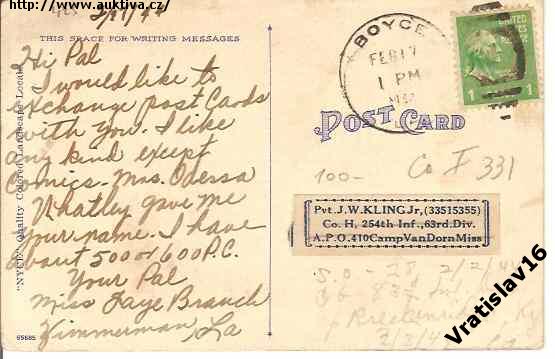 https://www.auktiva.cz/
2/11/44
THIS SPACE FOR WRITING MESSAGES
Hi Pal
I would like to
exchange post Cards
with you. I like
any kind except
Comics. Mrs. Odessa
Whatley gave me
your name. I have
about 500 or 600 P.C.
Your Pal
Miss Faye Branch
Zimmerman, La
"NYCE" Quality Colored Landscape Locals
65685
BOYCE
FEB 17
1 PM
UNITED
STATES
POSTAGE
1 1
POST CARD
100-
Co F 331
Pvt. J.W. KLING Jr, (33515355)
Co. H, 254th Inf., 63rd. Div.
A.P.O. 410 Camp Van Dorn Miss
S.O. 27, 2/2/4
Breckenridge, Ky
Vratislav16